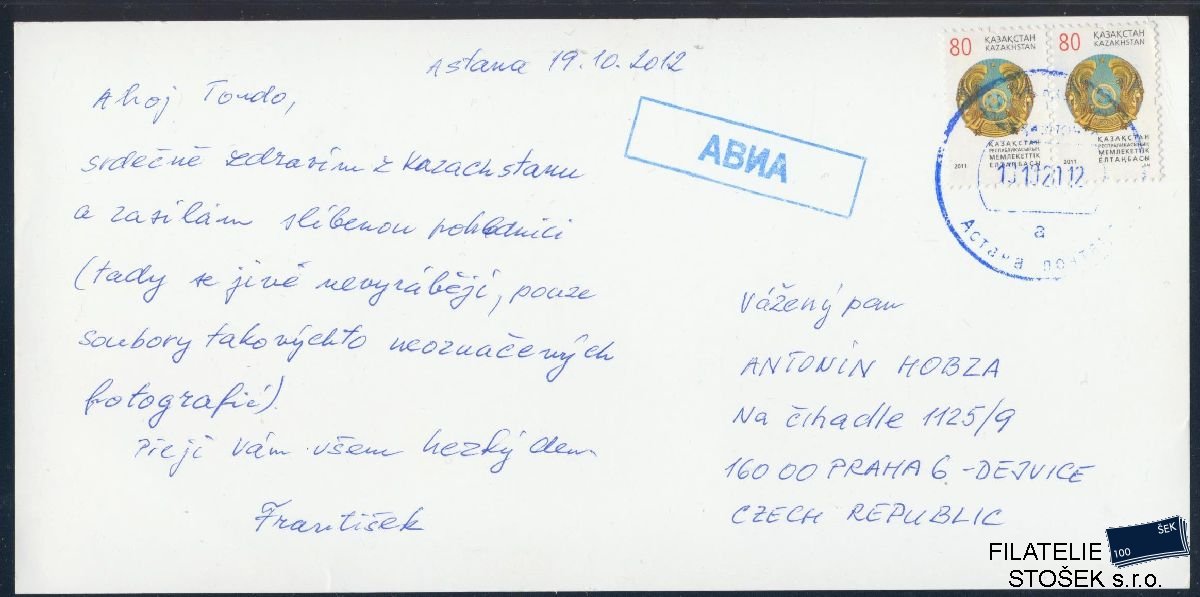 Astana 19.10.2012
Ahoj Tondo,
srdečně zdravím z Kazachstanu
a zasílám slíbenou pohlednici
(tady se jivé nevyrábějí, pouze
soubory takovýchto neoznačených
fotografií).
Přeji Vám všem hezký den
František
АВИА
80 ҚАЗАҚСТАН
KAZAKHSTAN
ҚАЗАҚСТАН
РЕСПУБЛИКАСЫНЫҢ
МЕМЛЕКЕТТІК
ЕЛТАҢБАСЫ
2011
80 ҚАЗАҚСТАН
KAZAKHSTAN
ҚАЗАҚСТАН
РЕСПУБЛИКАСЫНЫҢ
МЕМЛЕКЕТТІК
ЕЛТАҢБАСЫ
2011
а
Астана
Vážený pan
ANTONÍN HOBZA
Na čihadle 1125/9
160 00 PRAHA 6 - DEJVICE
CZECH REPUBLIC
100 ŠEK
FILATELIE
STOŠEK s.r.o.